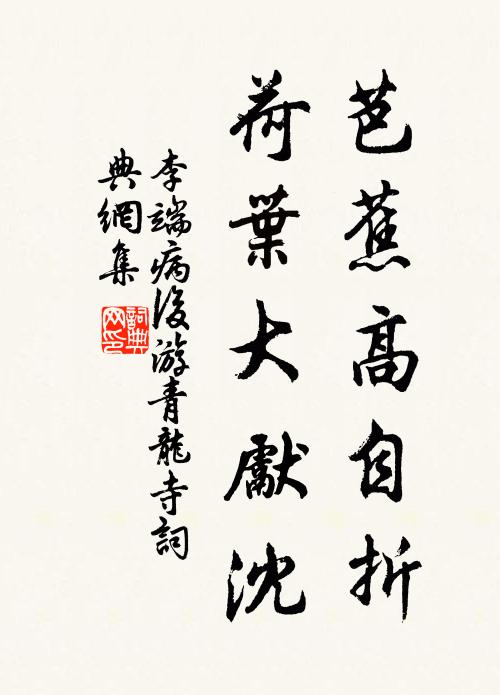 芭蕉高自折
荷葉大獻沈
李端病後游青龍寺詞
典網集
詞典
网印